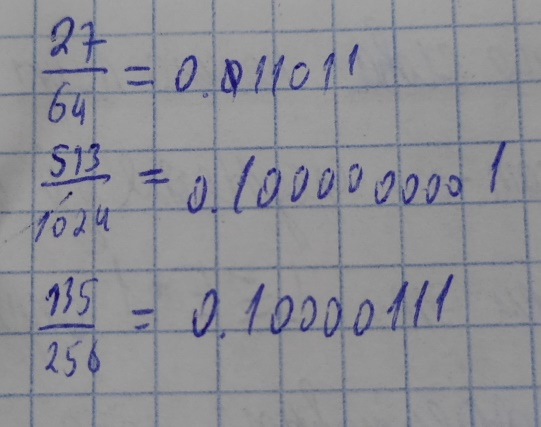 27/64 = 0.011011
513/1024 = 0.1000000001
135/256 = 0.10000111